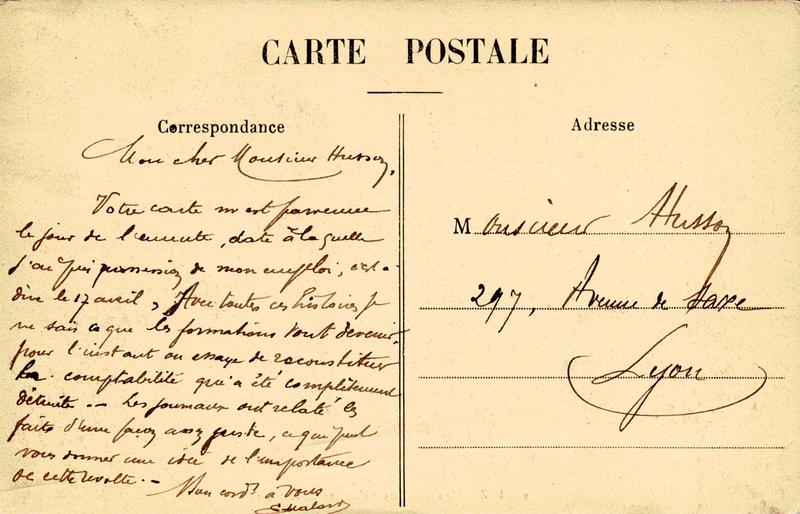 CARTE POSTALE
Correspondance
Mon cher Monsieur Husson,
Votre carte m'est parvenue
le jour de l'émeute, date à laquelle
j'ai pris possession de mon emploi, c'est-à-
dire le 17 avril, Avec toutes ces histoires je
ne sais ce que les formations vont devenir,
pour l'instant on essaye de reconstituer
la comptabilité qui a été complètement
détruite. — Les journaux ont relaté les
faits d'une façon assez juste, ce qui peut
vous donner une idée de l'importance
de cette révolte. —
Bien cordt à vous
Adresse
Monsieur Husson
297, Avenue de Saxe
Lyon